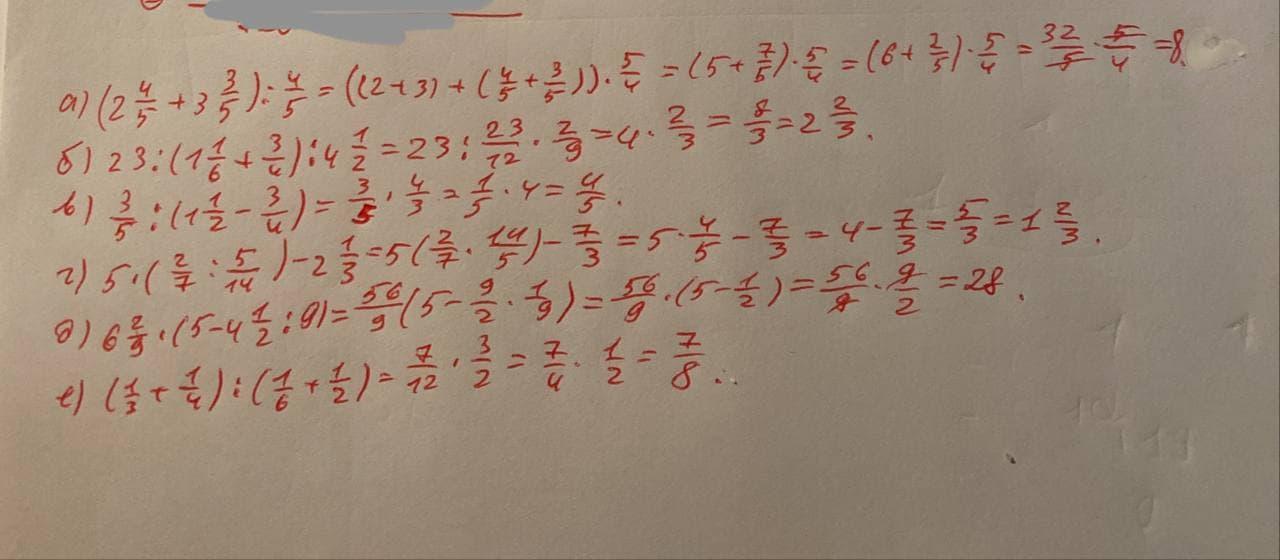 а) (2 4/5 + 3 3/5) : 4/5 = ((2+3) + (4/5 + 3/5)) · 5/4 = (5 + 7/5) · 5/4 = (6 + 2/5) · 5/4 = 32/5 · 5/4 = 8.
б) 23 : (1 1/6 + 3/4) : 4 1/2 = 23 : 23/12 · 2/9 = 4 · 2/3 = 8/3 = 2 2/3.
в) 3/5 : (1 1/2 - 3/4) = 3/5 · 4/3 = 1/5 · 4 = 4/5.
г) 5 · (2/7 : 5/14) - 2 1/3 = 5(2/7 · 14/5) - 7/3 = 5 · 4/5 - 7/3 = 4 - 7/3 = 5/3 = 1 2/3.
д) 6 2/9 · (5 - 4 1/2 : 9) = 56/9 (5 - 9/2 · 1/9) = 56/9 · (5 - 1/2) = 56/9 · 9/2 = 28.
е) (1/3 + 1/4) : (1/6 + 1/2) = 7/12 · 3/2 = 7/4 · 1/2 = 7/8.